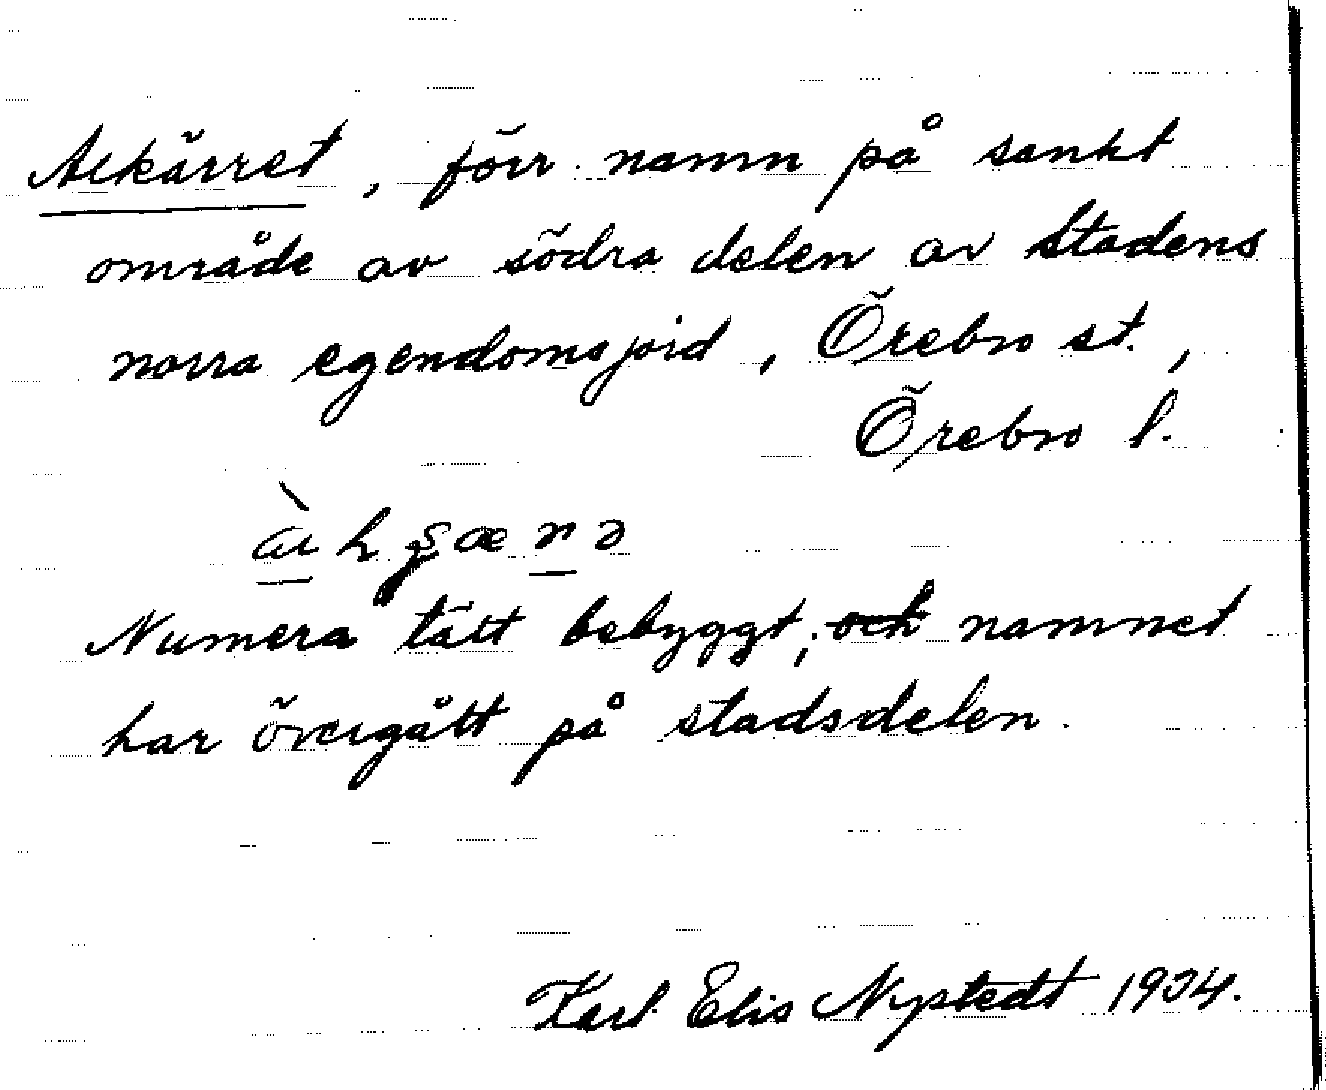 Ackärret, förr namn på sankt
område av södra delen av Stadens
norra egendomsjord, Örebro st.,
Örebro l.
Numera tätt bebyggt; och namnet
har övergått på stadsdelen.
Karl Elis Nystedt 1934.